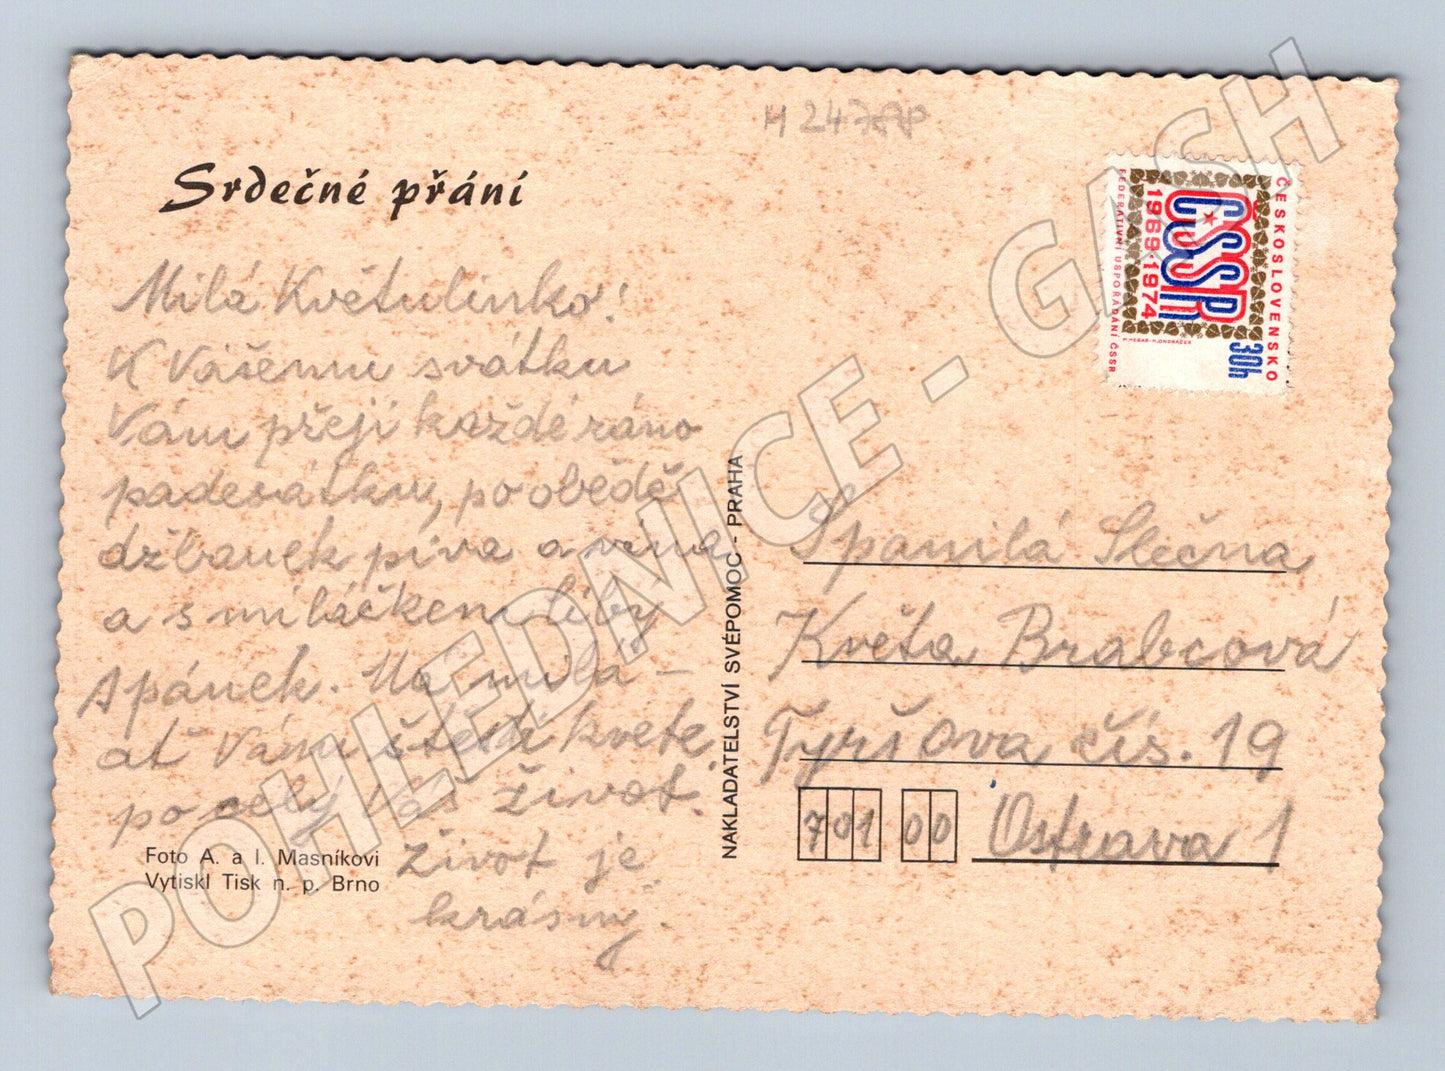 Srdečné přání
Milá Květulinko!
K Vášemu svátku
Vám přeji každé ráno
padesátku, po obědě
džbanek piva a vína
a s miláčkem líby
spánek. Má milá –
ať Vám štěstí kvete
po celý Váš život.
Život je
krásný.
Foto A. a I. Masníkovi
Vytiskl Tisk n. p. Brno
NAKLADATELSTVÍ SVÉPOMOC - PRAHA
M 247
ČESKOSLOVENSKO
ČSSR
1969·1974
FEDERATIVNÍ USPOŘÁDÁNÍ ČSSR
30h
Spanilá Slečna
Květa Brabcová
Tyršova čís. 19
701 00 Ostrava 1
POHLEDNICE - GASH